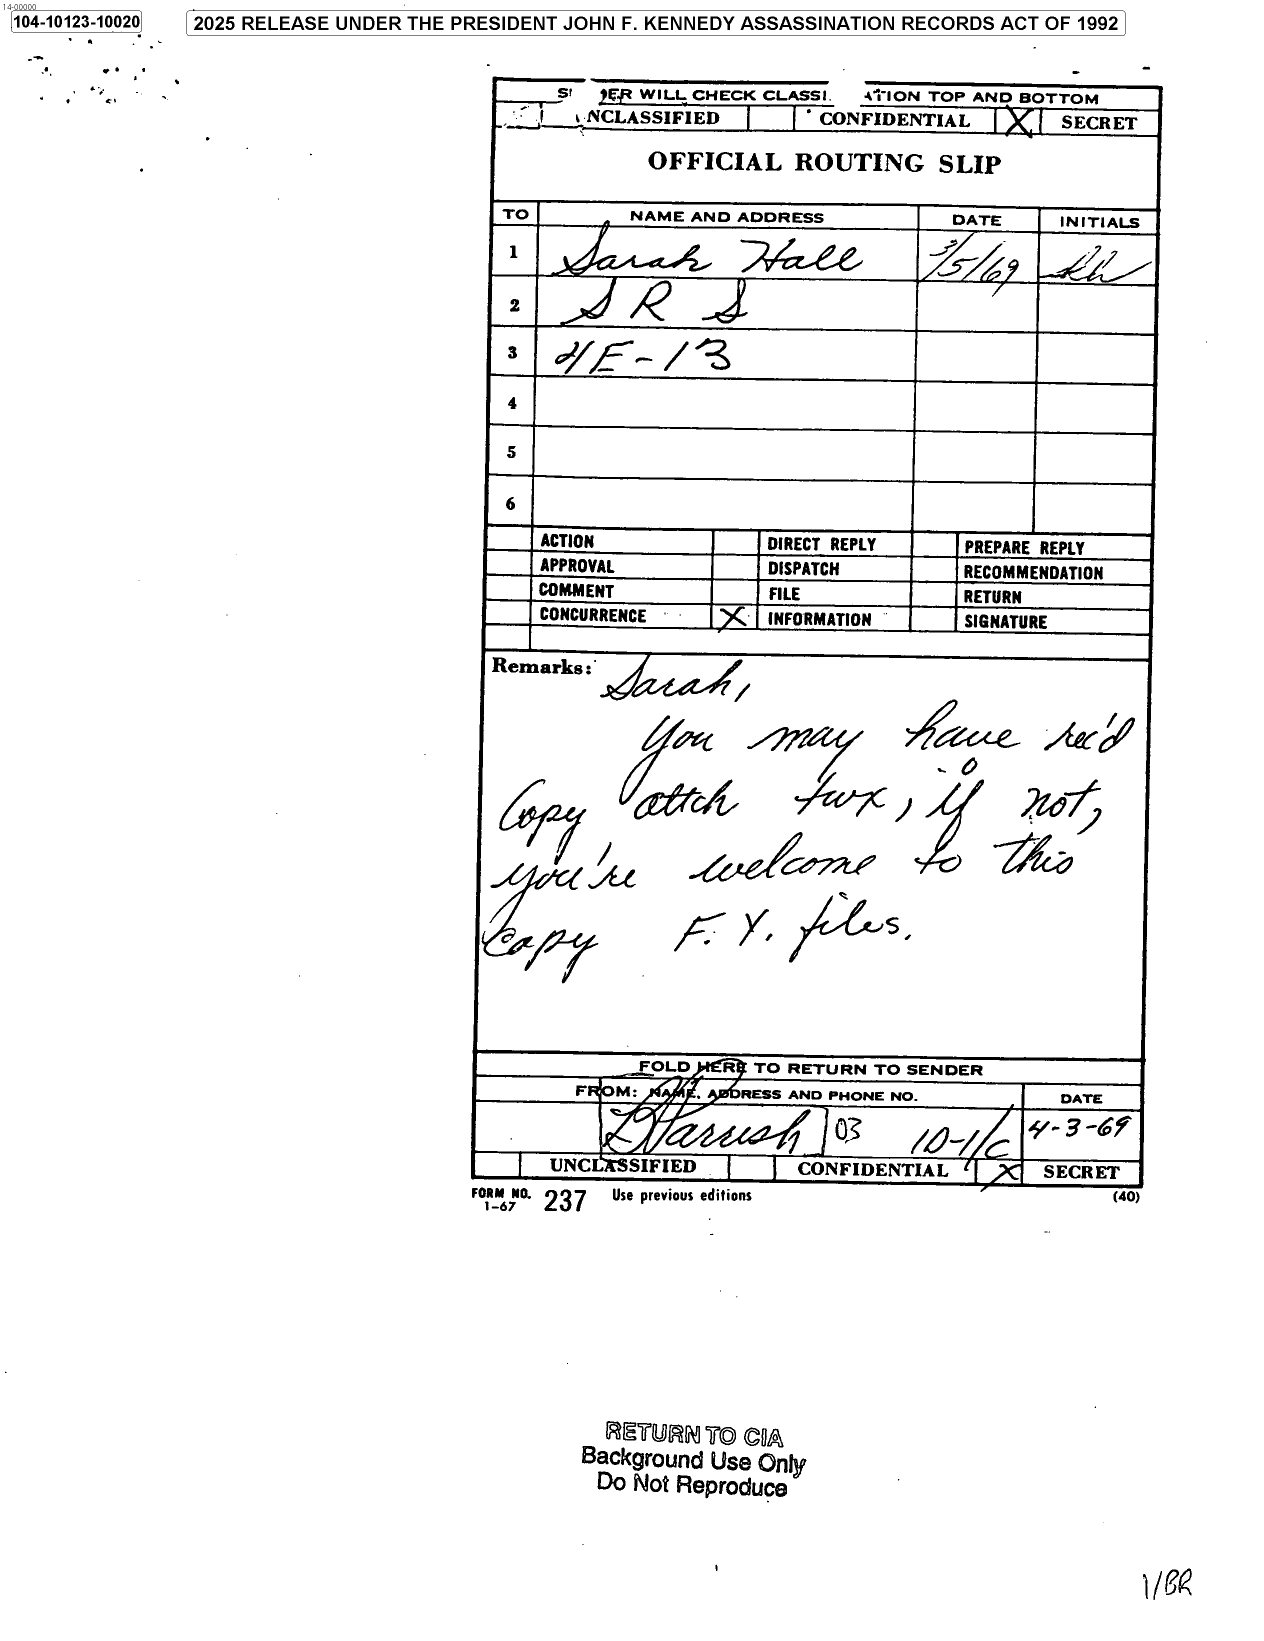 14-00000
104-10123-10020
2025 RELEASE UNDER THE PRESIDENT JOHN F. KENNEDY ASSASSINATION RECORDS ACT OF 1992
WILL CHECK CLASSI. ATION TOP AND BOTTOM
NCLASSIFIED CONFIDENTIAL X SECRET
OFFICIAL ROUTING SLIP
TO NAME AND ADDRESS DATE INITIALS
1 Sarah Hall 3/5/69
2 S R S
3 4E-13
4
5
6
ACTION DIRECT REPLY PREPARE REPLY
APPROVAL DISPATCH RECOMMENDATION
COMMENT FILE RETURN
CONCURRENCE X INFORMATION SIGNATURE
Remarks: Sarah,
You may have rec'd
Copy attch twx, if not,
you're welcome to this
Copy F. Y. files.
FOLD HERE TO RETURN TO SENDER
FROM: NAME, ADDRESS AND PHONE NO. DATE
Parrish 03 1D-1/C 4-3-69
UNCLASSIFIED CONFIDENTIAL X SECRET
FORM NO. 1-67 237 Use previous editions (40)
RETURN TO CIA
Background Use Only
Do Not Reproduce
1/BR